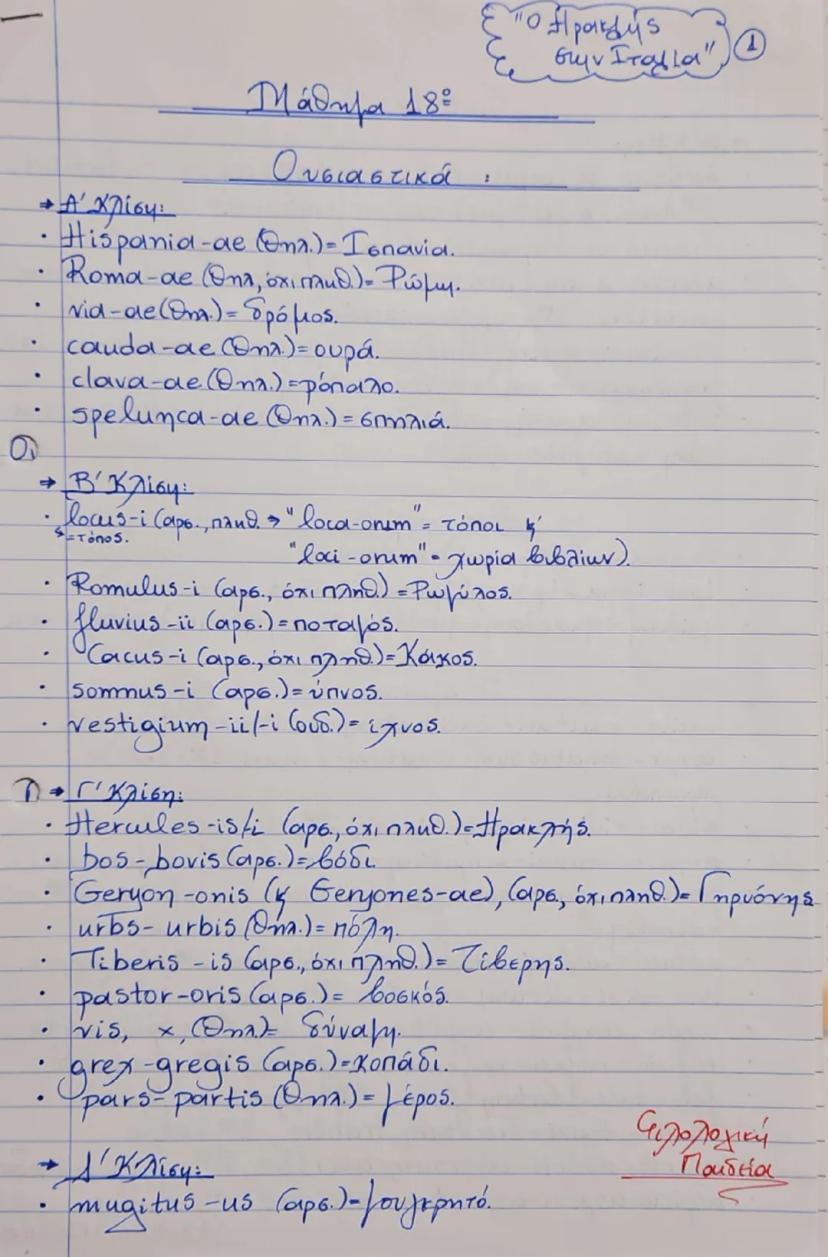 "Ο Ηρακλής
στην Ιταλία" 1
Μάθημα 18º
Ουσιαστικά :
→ Α' Κλίση:
· Hispania-ae (θηλ.)= Ισπανία.
· Roma-ae (θηλ, όχι πληθ.)= Ρώμη.
· via-ae (θηλ.)= δρόμος.
· cauda-ae (θηλ.)=ουρά.
· clava-ae (θηλ.)=ρόπαλο.
· spelunca-ae (θηλ.)= σπηλιά.
→ Β' Κλίση:
· locus-i (αρσ., πληθ. → "loca-orum" = τόποι &
↳=τόπος.
"loci-orum"= χωρία βιβλίων).
· Romulus-i (αρσ., όχι πληθ.) =Ρωμύλος.
· fluvius-ii (αρσ.)=ποταμός.
· Cacus-i (αρσ., όχι πληθ.)=Κάκος.
· somnus-i (αρσ.)= ύπνος.
· vestigium-ii/-i (ουδ.)= ίχνος.
→ Γ' Κλίση:
· Hercules-is/i (αρσ., όχι πληθ.)=Ηρακλής.
· bos-bovis (αρσ.)=βόδι
· Geryon-onis (& Geryones-ae), (αρσ., όχι πληθ.)= Γηρυόνης
· urbs- urbis (θηλ.)= πόλη.
· Tiberis -is (αρσ., όχι πληθ.)= Τίβερης.
· pastor-oris (αρσ.)= βοσκός.
· vis, x, (θηλ)= δύναμη.
· grex-gregis (αρσ.)=κοπάδι.
· pars- partis (θηλ.)= μέρος.
Φιλολογική
Παιδεία
→ Δ' Κλίση:
· mugitus -us (αρσ.)=μουγκρητό.